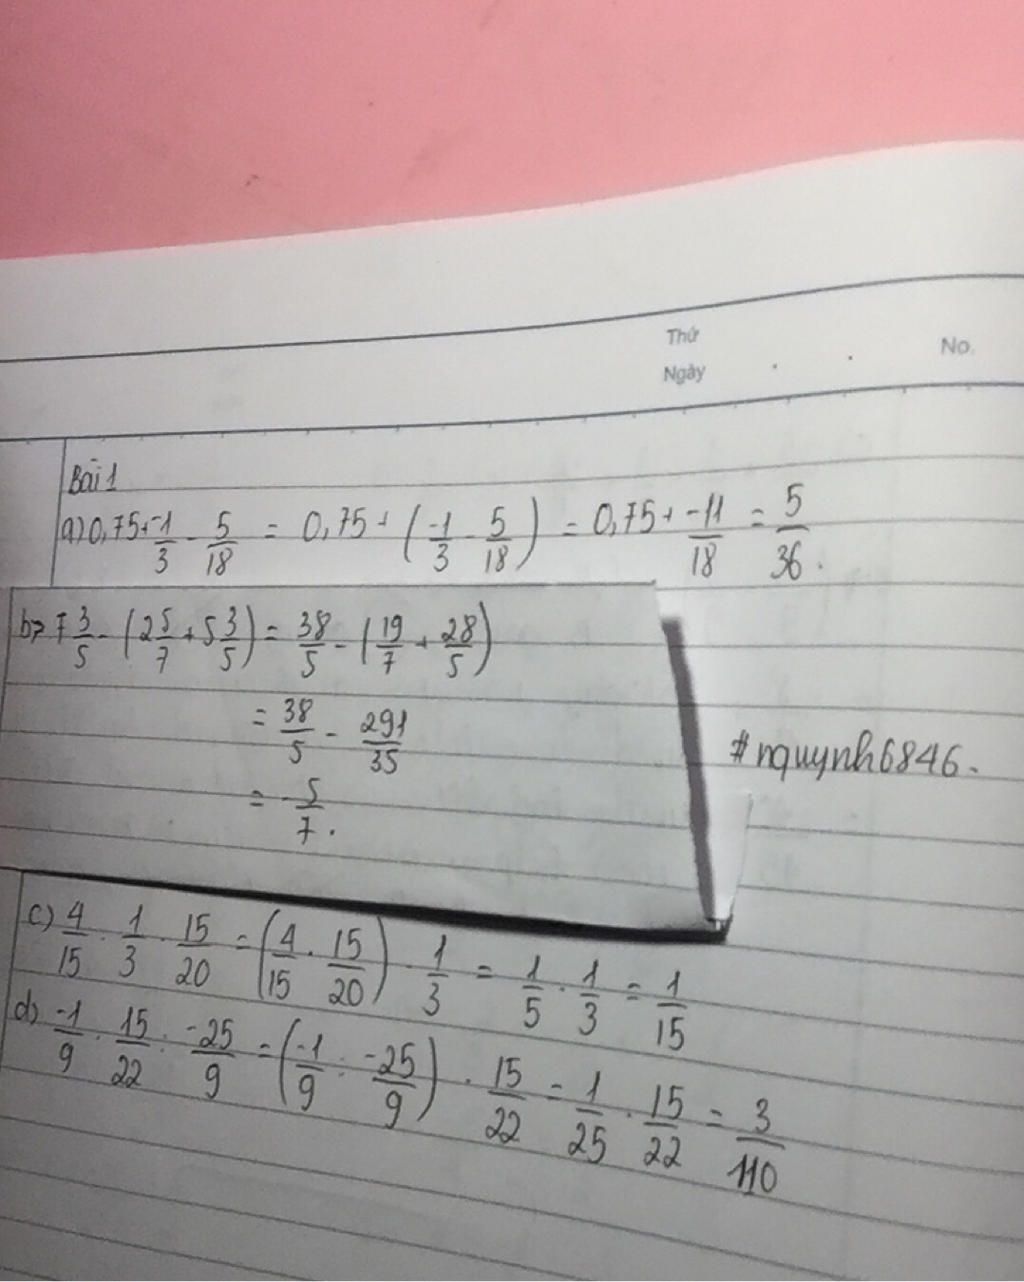 Thứ
Ngày
No.
Bài 1
a) 0,75 + -1/3 - 5/18 = 0,75 + (-1/3 - 5/18) = 0,75 + -11/18 = 5/36.
b> 7 3/5 - (2 5/7 + 5 3/5) = 38/5 - (19/7 + 28/5)
= 38/5 - 291/35
= -5/7.
#nquynh6846.
c) 4/15 . 1/3 . 15/20 = (4/15 . 15/20) . 1/3 = 1/5 . 1/3 = 1/15
d) -1/9 . 15/22 : -25/9 = (-1/9 : -25/9) . 15/22 = 1/25 . 15/22 = 3/110